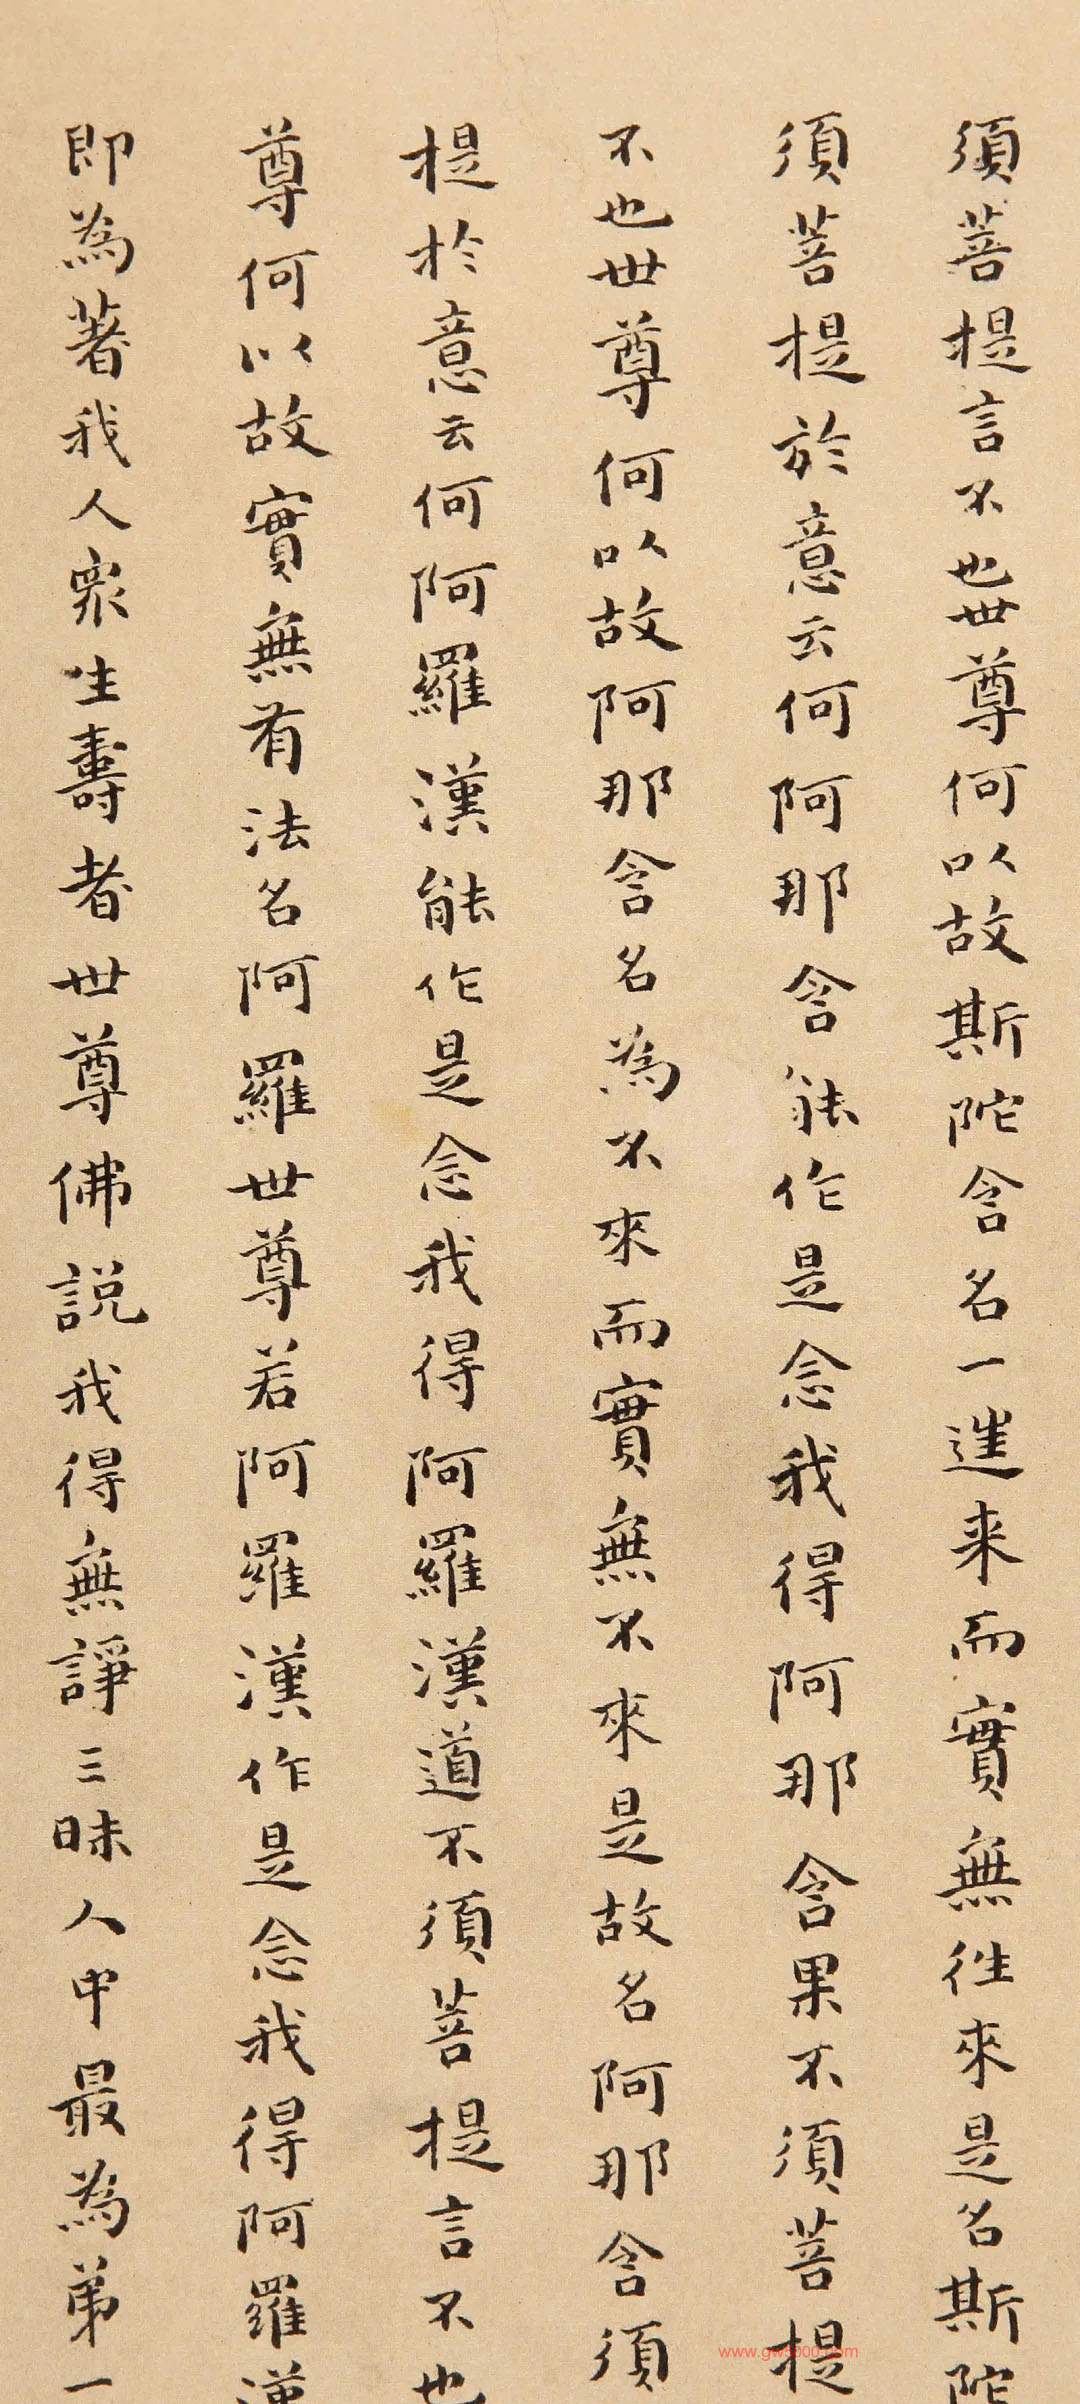 須菩提言不也世尊何以故斯陀含名一進来而實無往來是名斯陀
須菩提於意云何阿那含能作是念我得阿那含果不須菩提
不也世尊何以故阿那含名為不來而實無不來是故名阿那含須
提於意云何阿羅漢能作是念我得阿羅漢道不須菩提言不也
尊何以故實無有法名阿羅世尊若阿羅漢作是念我得阿羅漢
即為著我人衆生壽者世尊佛説我得無諍三昧人中最為第一
www.gw5000.com